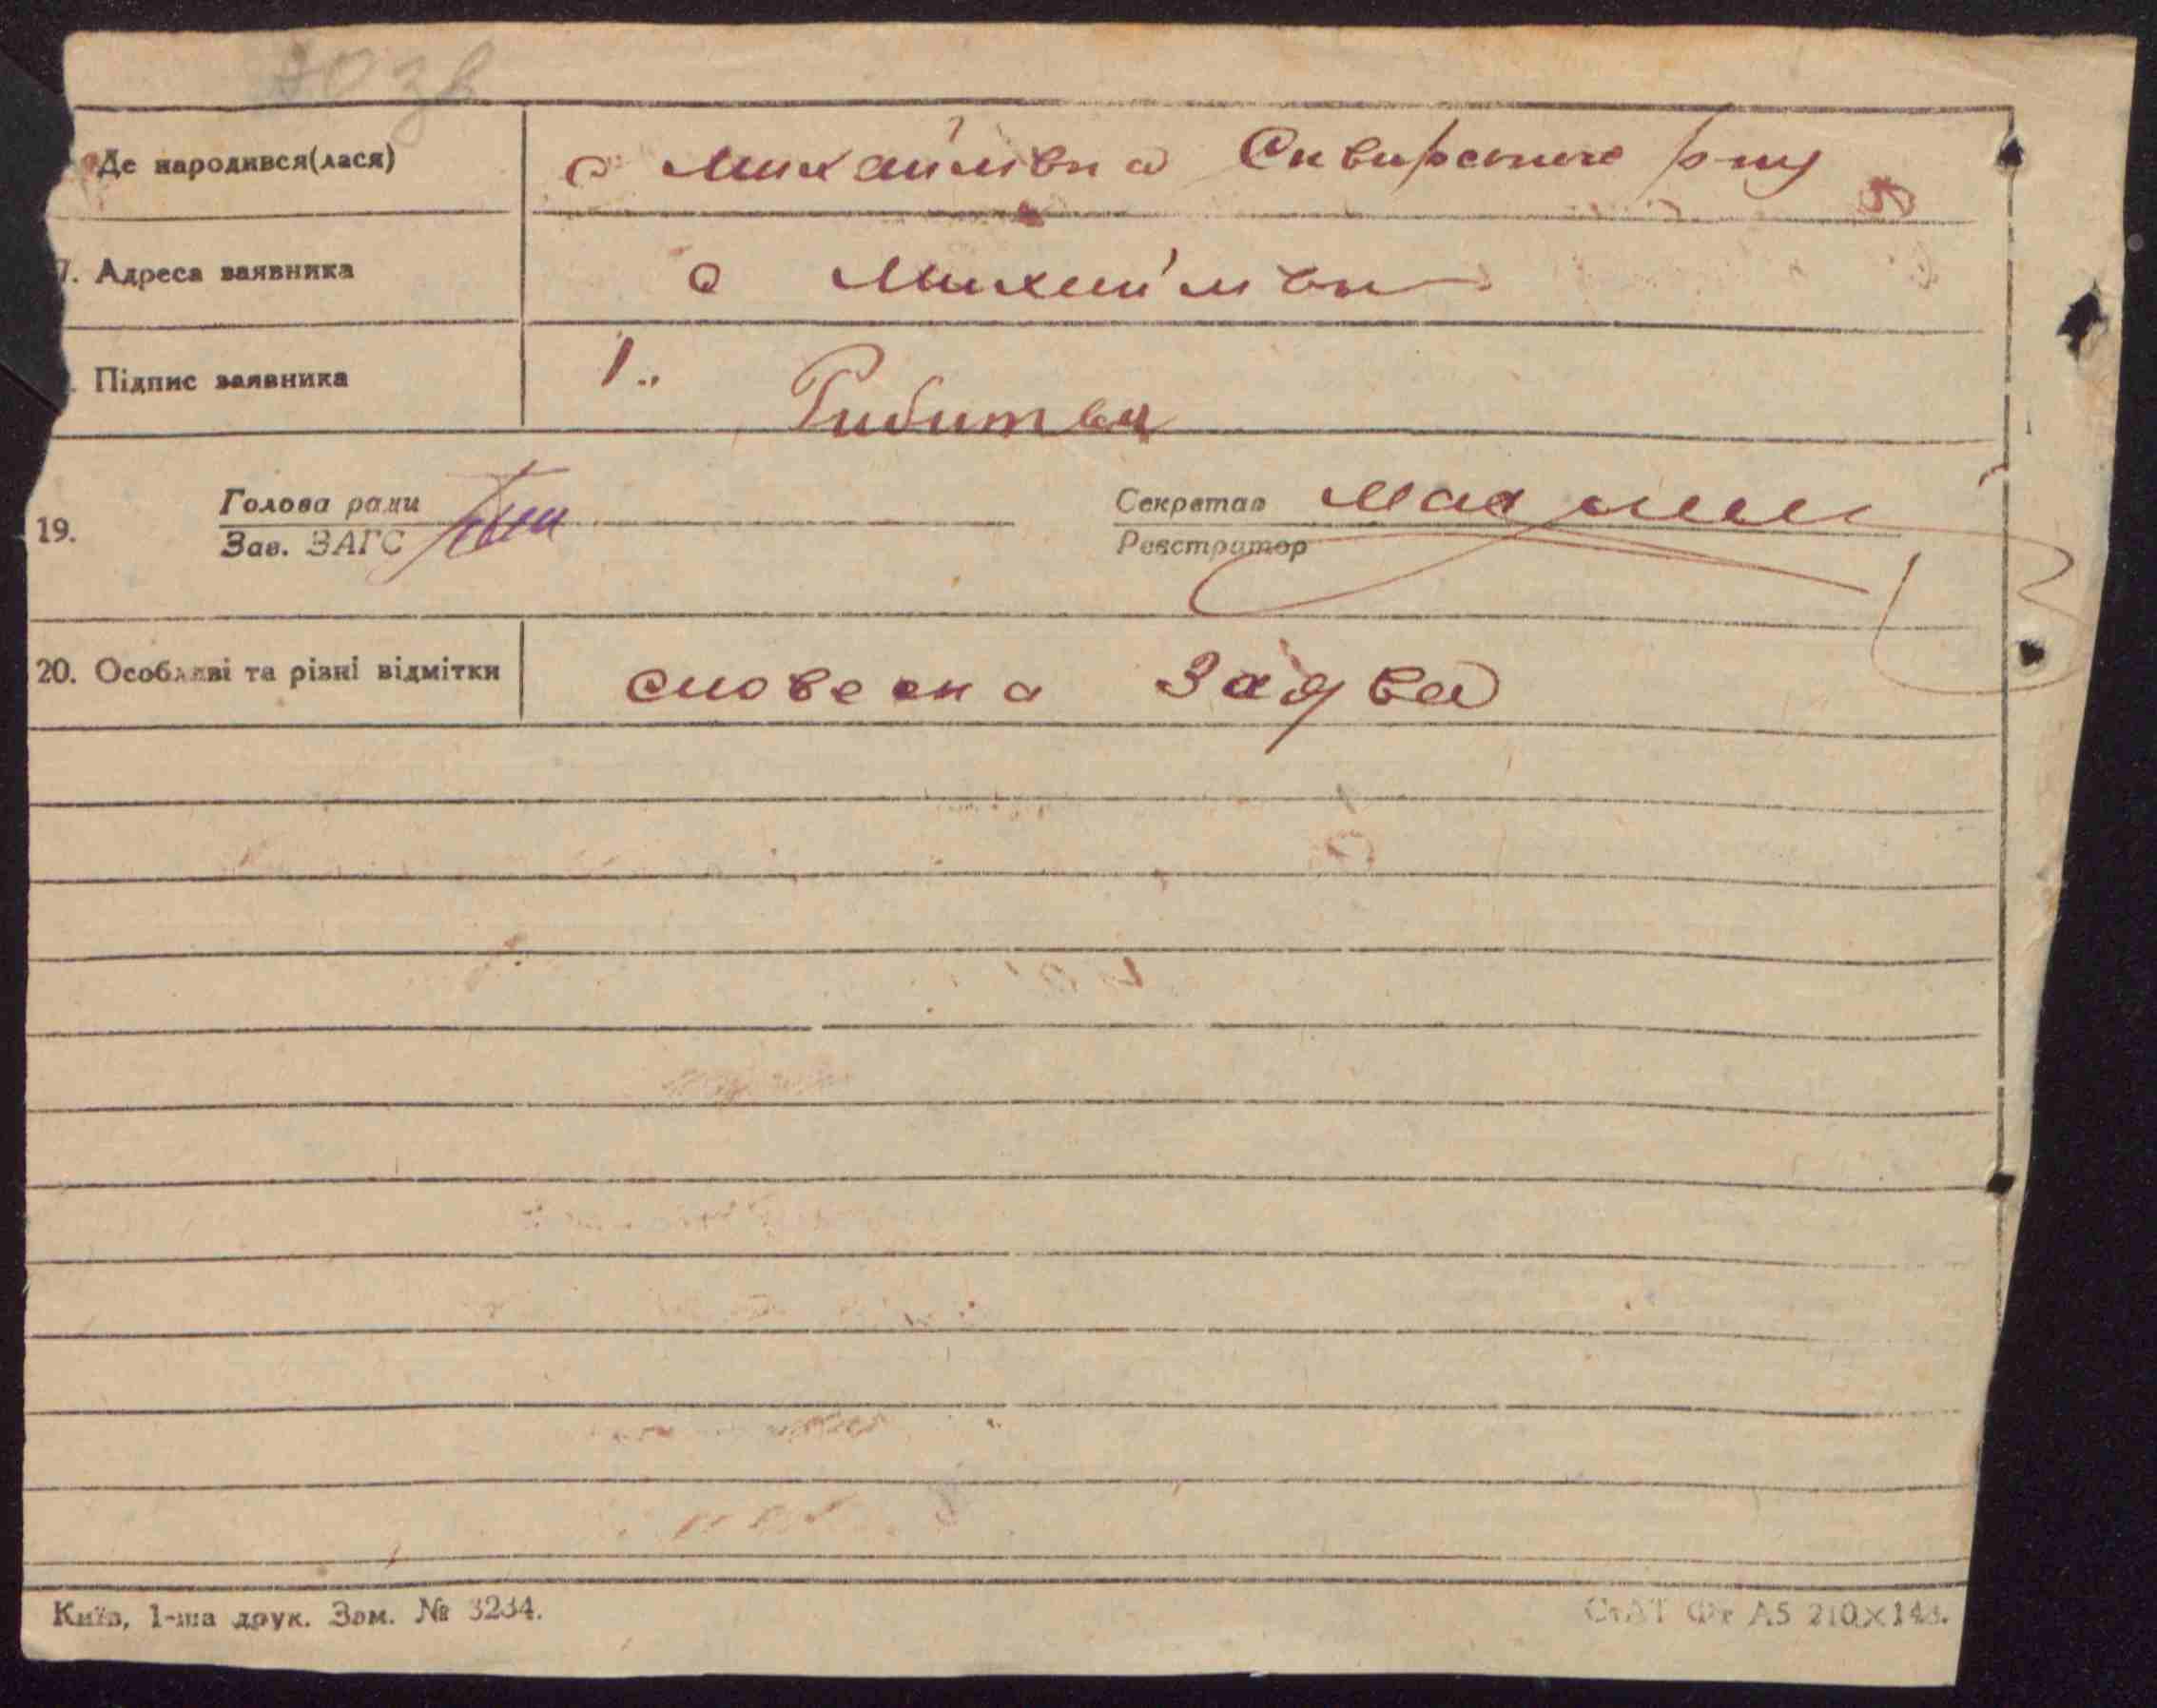 Де народився(лася) с Михайлівка Сквирського р-ну
7. Адреса заявника с Михайлівка
Підпис заявника 1..
19. Голова ради Секретар
Зав. ЗАГС Реєстратор
20. Особливі та різні відмітки словесна Заява
Київ, 1-ша друк. Зам. № 3234.
СтАТ Фт А5 210×148.